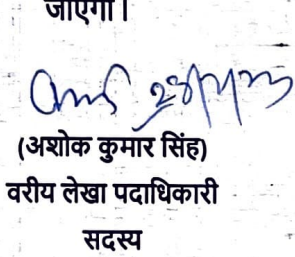 जाएगा।
(अशोक कुमार सिंह)
वरीय लेखा पदाधिकारी
सदस्य